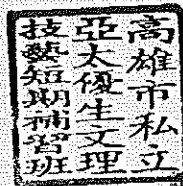 高雄市私立
亞太優生文理
技藝短期補習班